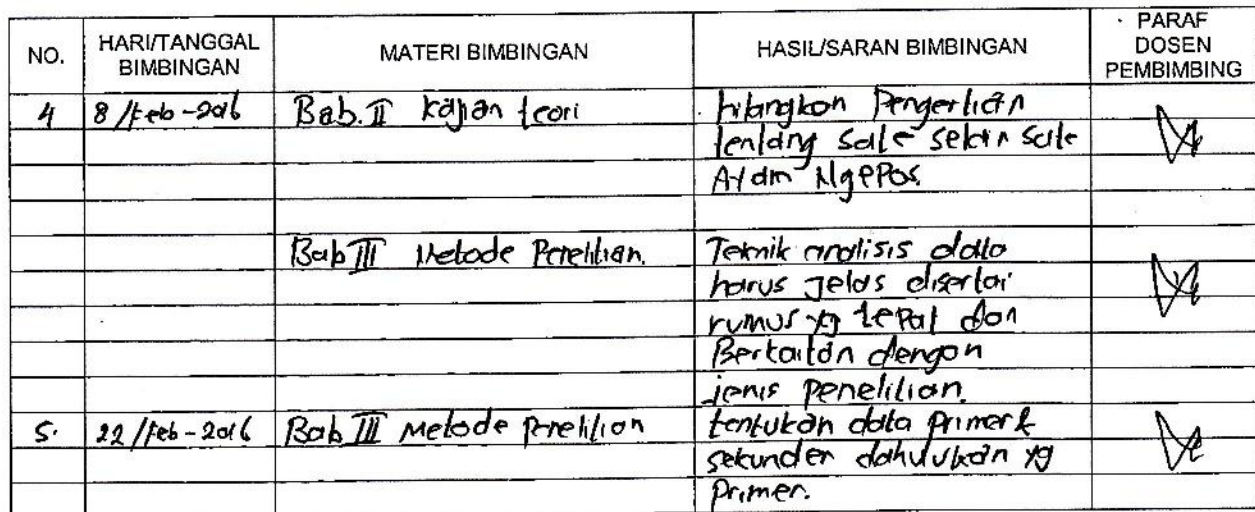 NO. HARI/TANGGAL BIMBINGAN MATERI BIMBINGAN HASIL/SARAN BIMBINGAN PARAF DOSEN PEMBIMBING
4 8/Feb-2016 Bab. II kajian teori hilangkan Pengertian
tentang sate selain sate
Ayam Ngepos.
Bab III Metode Penelitian. Teknik analisis data
harus jelas disertai
rumus yg tepat dan
Berkaitan dengan
jenis penelitian.
5. 22/Feb-2016 Bab III Metode Penelitian tentukan data primer &
sekunder dahulukan yg
Primer.